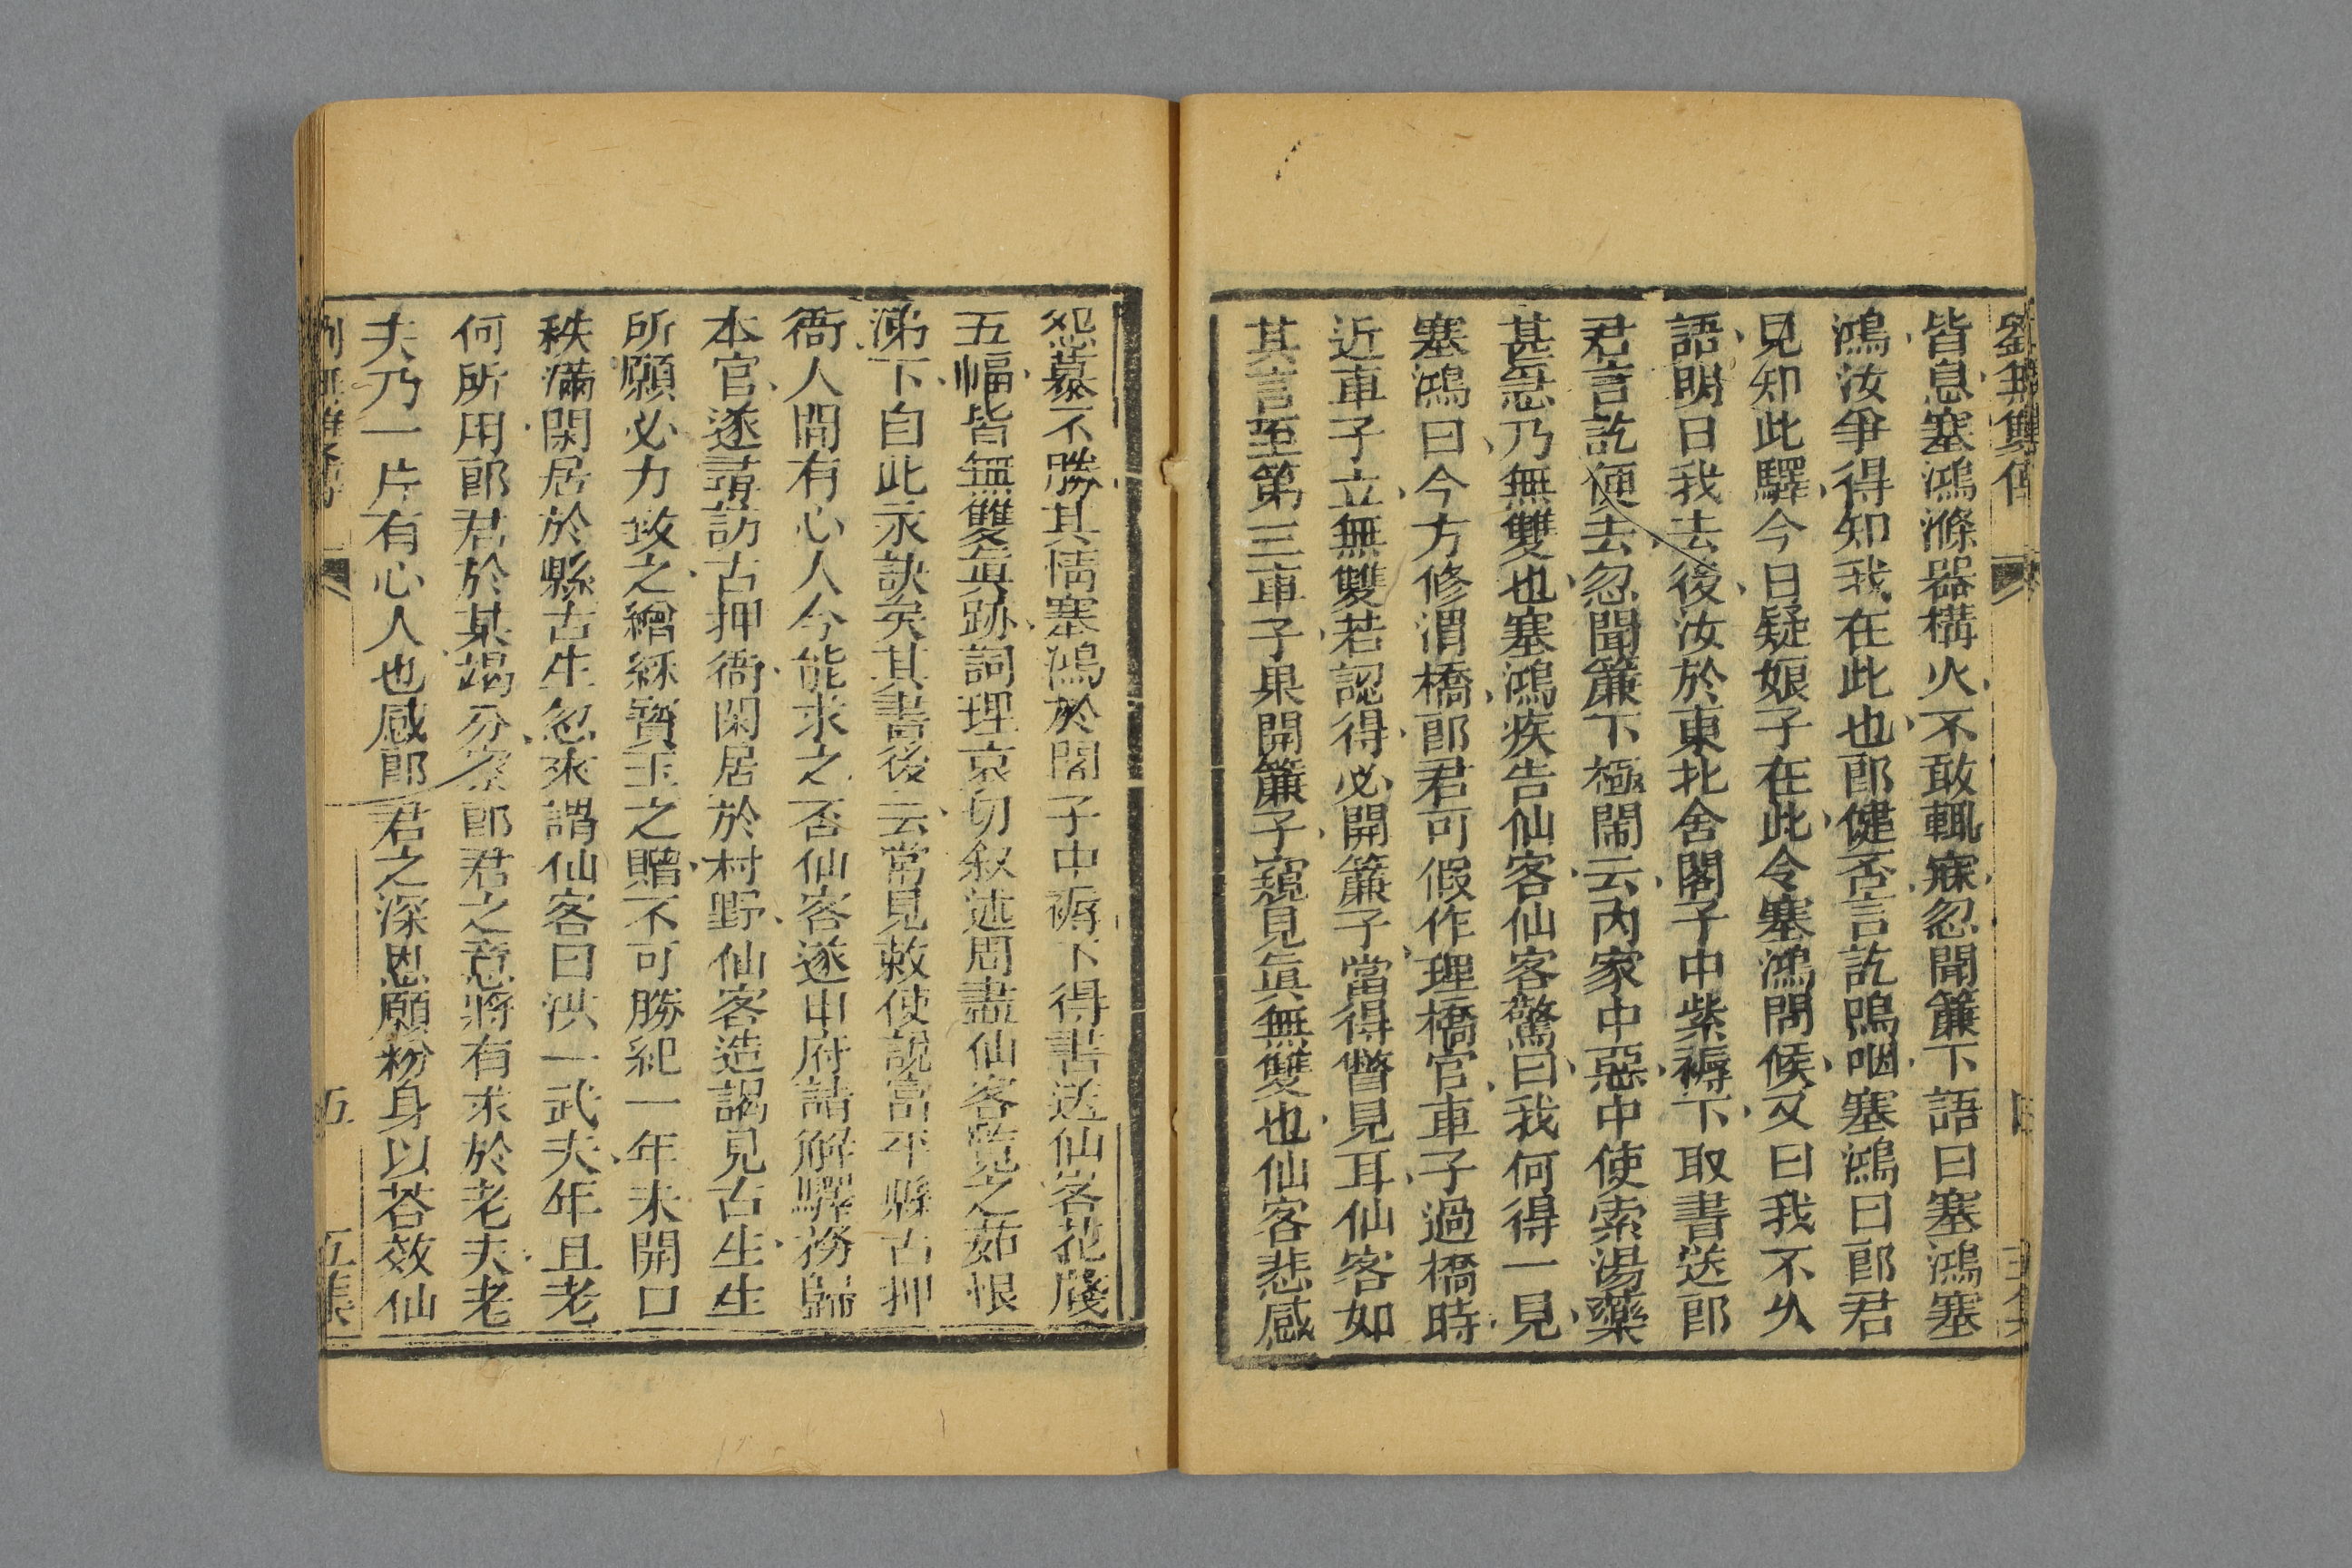 劉無雙傳
皆息塞鴻滌器構火不敢輒寐忽聞簾下語曰塞鴻塞
鴻汝爭得知我在此也郎健否言訖嗚咽塞鴻曰郎君
見知此驛今日疑娘子在此令塞鴻問候又曰我不久
語明日我去後汝於東北舍閣子中紫褥下取書送郎
君言訖便去忽聞簾下極鬧云內家中惡中使索湯藥
甚急乃無雙也塞鴻疾告仙客仙客驚曰我何得一見
塞鴻曰今方修渭橋郎君可假作理橋官車子過橋時
近車子立無雙若認得必開簾子當得瞥見耳仙客如
其言至第三車子果開簾子窺見眞無雙也仙客悲感
怨慕不勝其情塞鴻於閣子中褥下得書送仙客花牋
五幅皆無雙眞跡詞理哀切叙述周盡仙客覽之茹恨
涕下自此永訣矣其書後云常見敕使說富平縣古押
衙人間有心人今能求之否仙客遂申府請解驛務歸
本官遂尋訪古押衙閑居於村野仙客造謁見古生生
所願必力致之繒綵寶玉之贈不可勝紀一年未開口
秩滿閑居於縣古生忽來謂仙客曰洪一武夫年且老
何所用郎君於某竭分察郎君之意將有求於老夫老
夫乃一片有心人也感郎君之深恩願粉身以荅效仙
五
五集